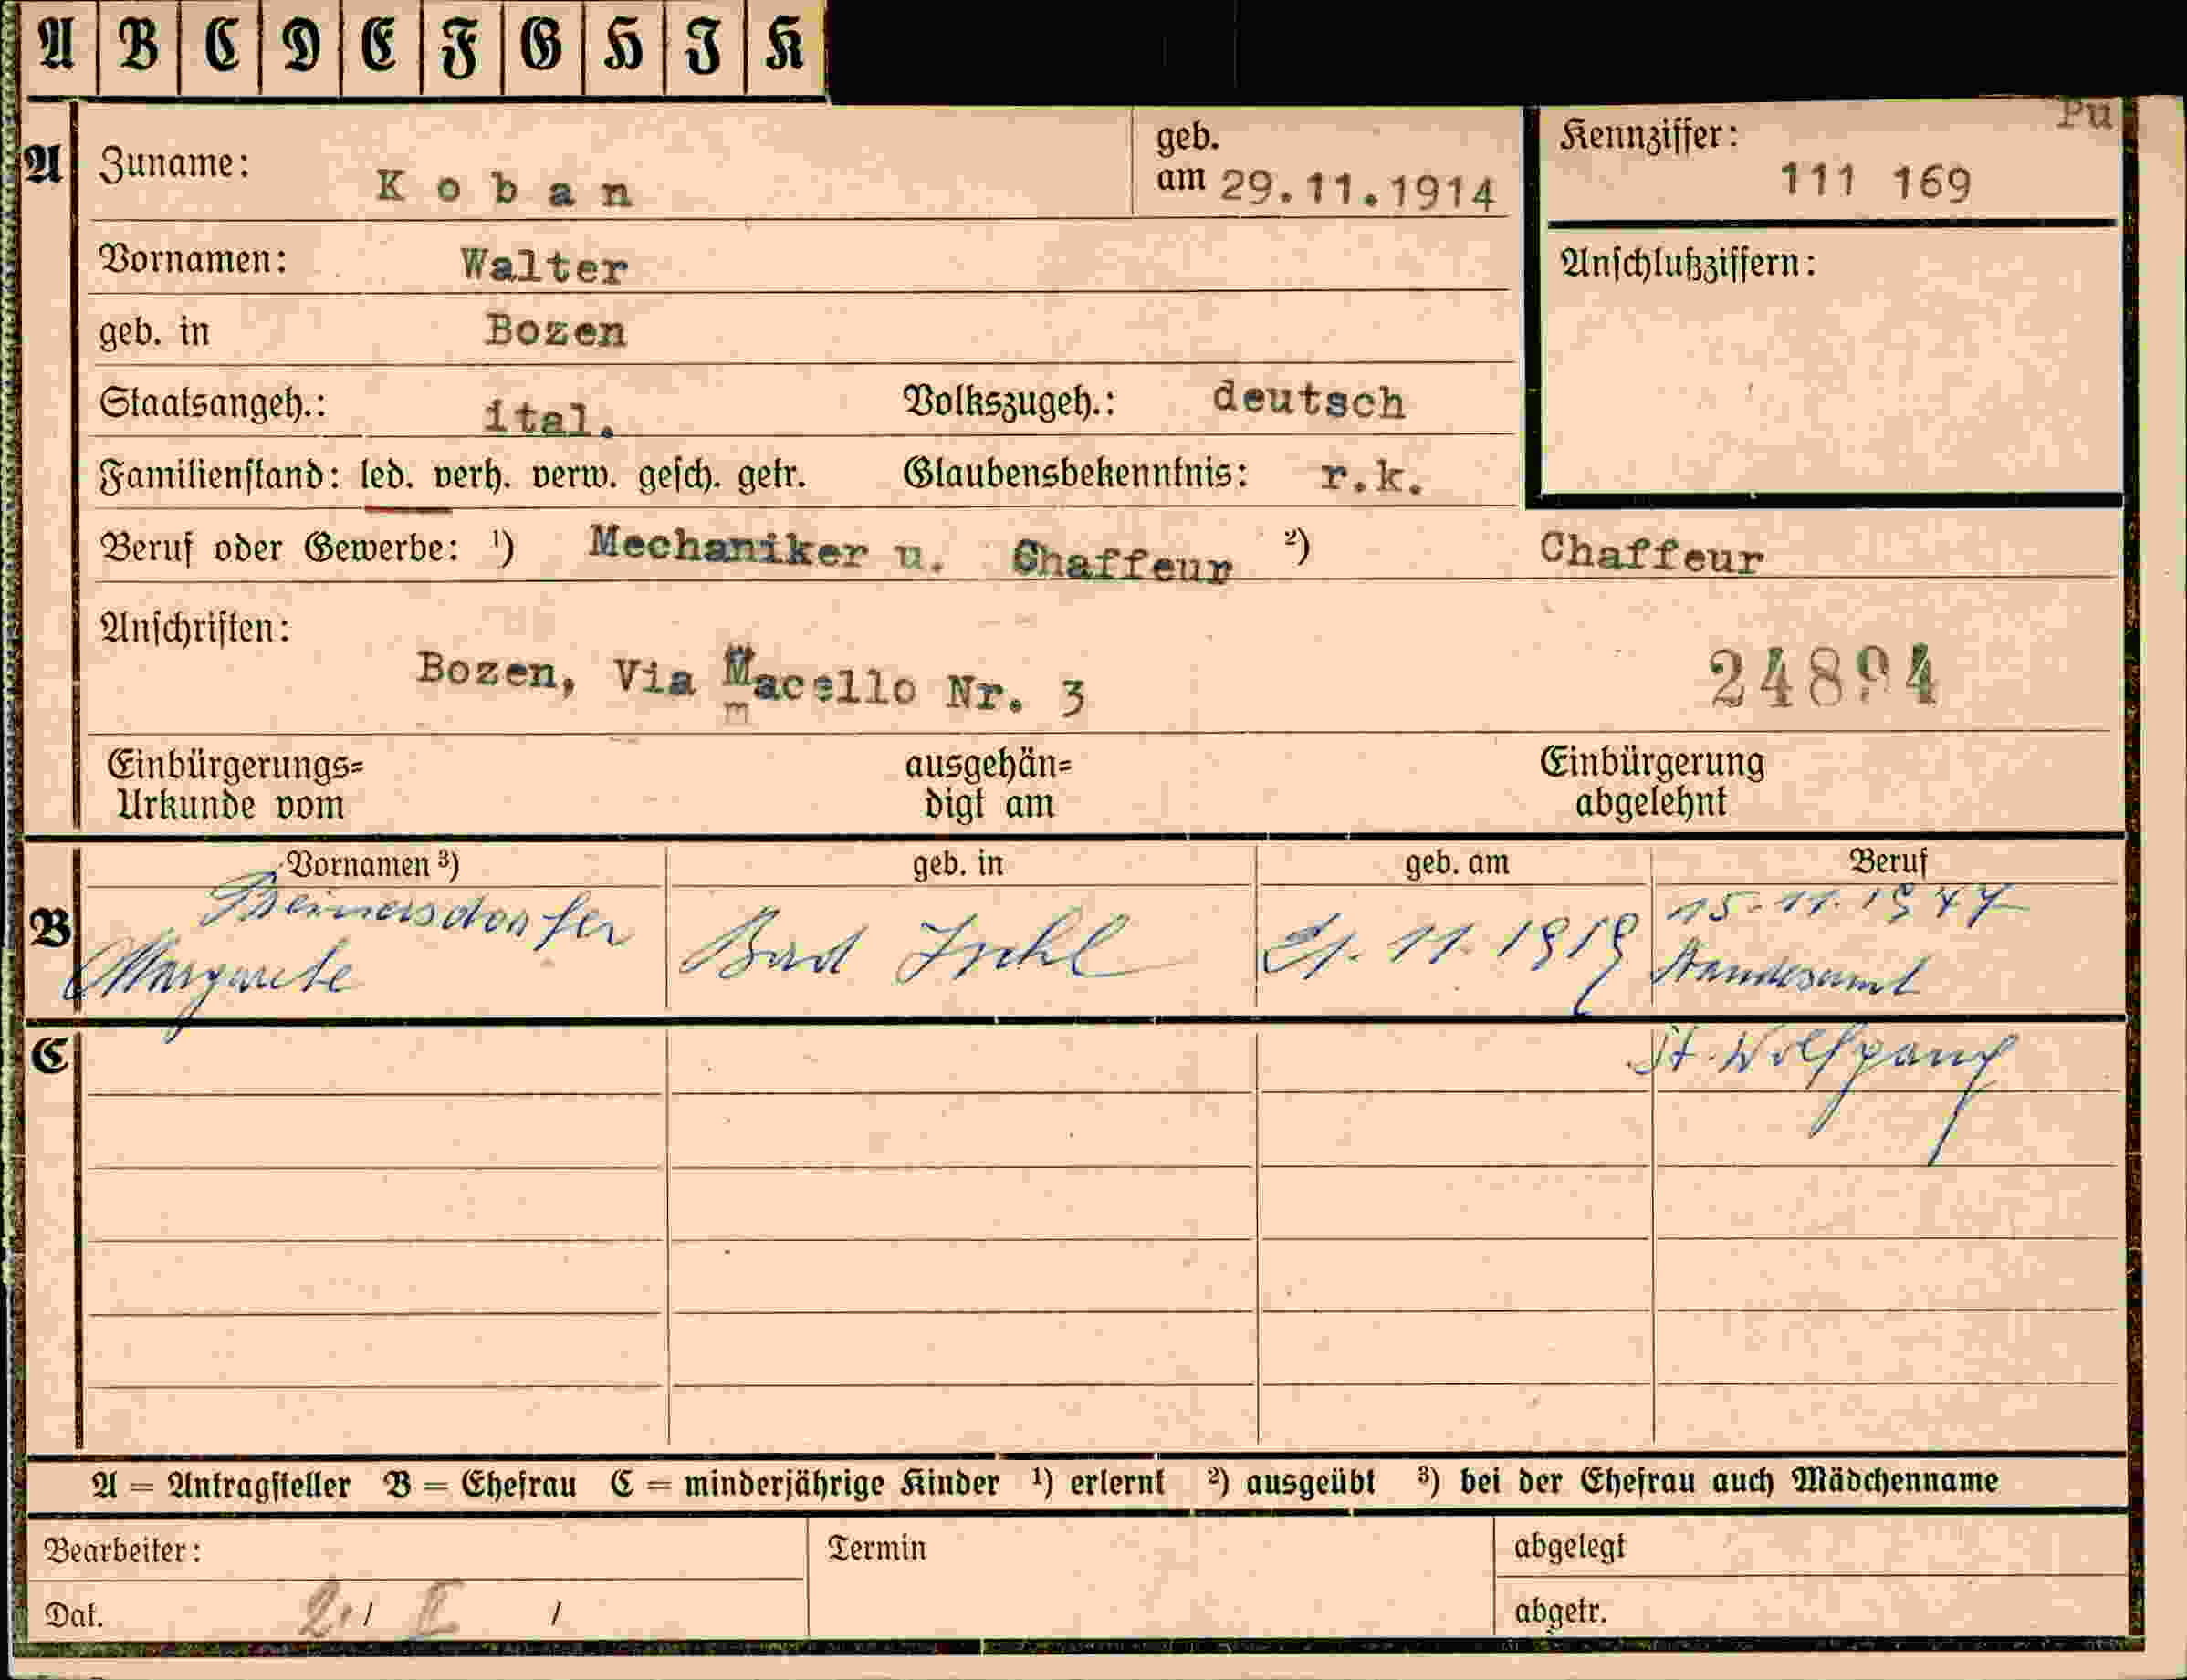 A B C D E F G H I K
Pu
A Zuname: Koban geb. am 29.11.1914 Kennziffer: 111 169
Vornamen: Walter Anschlußziffern:
geb. in Bozen
Staatsangeh.: ital. Volkszugeh.: deutsch
Familienstand: led. verh. verw. gesch. getr. Glaubensbekenntnis: r.k.
Beruf oder Gewerbe: ¹) Mechaniker u. Chaffeur ²) Chaffeur
Anschriften:
Bozen, Via Macello Nr. 3 24894
m
Einbürgerungs= ausgehän= Einbürgerung
Urkunde vom digt am abgelehnt
Vornamen ³) geb. in geb. am Beruf
15.11.1947
B Margarete Bad Ischl 21.11.1919 Standesamt
C St. Wolfgang
A = Antragsteller B = Ehefrau C = minderjährige Kinder ¹) erlernt ²) ausgeübt ³) bei der Ehefrau auch Mädchenname
Bearbeiter: Termin abgelegt
Dat. / / abgetr.